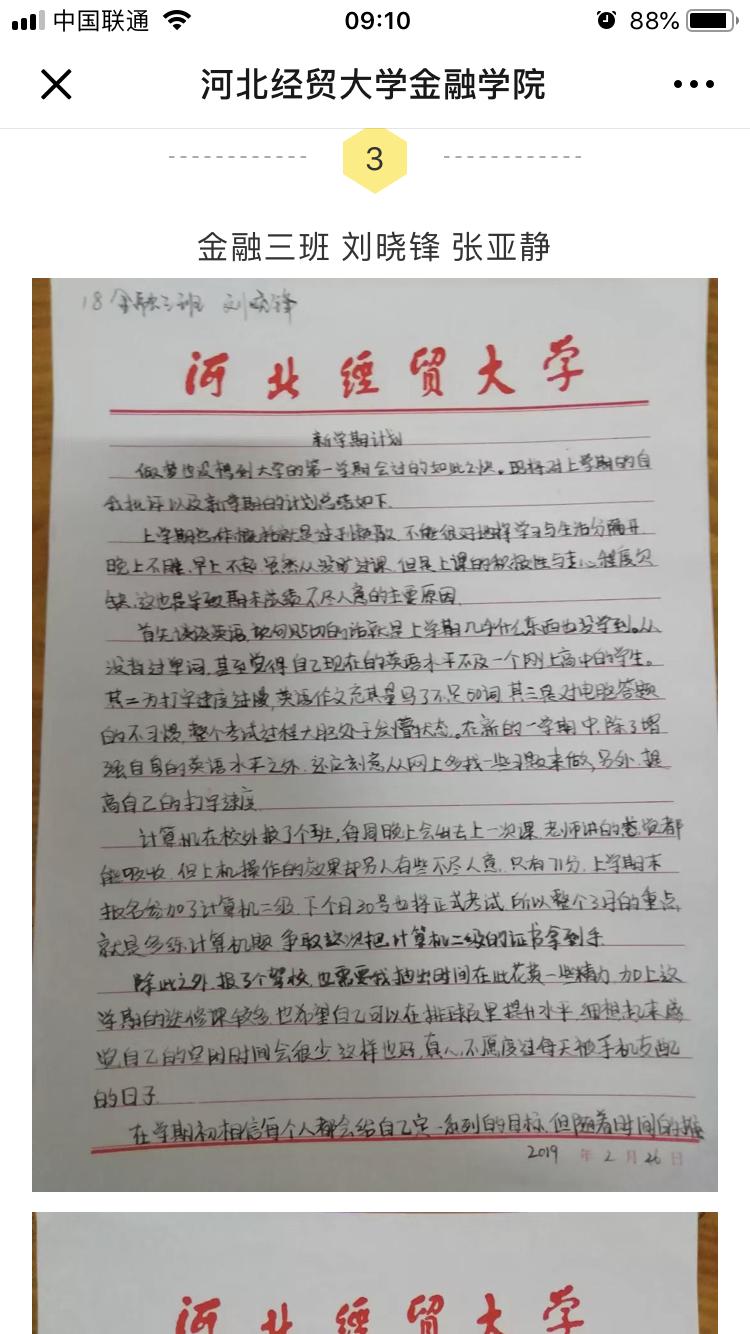 中国联通 09:10 88%
河北经贸大学金融学院
3
金融三班 刘晓锋 张亚静
18金融三班 刘晓锋
河北经贸大学
新学期计划
做梦也没想到大学的第一学期会过的如此之快。现将对上学期的自
我批评以及新学期的计划总结如下
上学期总体概括就是过于松散,不能很好地将学习与生活分隔开
晚上不睡,早上不起,虽然从没旷过课,但是上课的积极性与专心程度欠
缺,这也是导致期末成绩不尽人意的主要原因
首先谈谈英语,说句贴切的话就是上学期几乎什么东西也没学到。从
没背过单词,甚至觉得自己现在的英语水平不及一个刚上高中的学生。
其二为打字速度过慢,英语作文充其量写了不足50词,其三是对电脑答题
的不习惯,整个考试过程大脑处于发懵状态。在新的一学期中,除了增
强自身的英语水平之外,还应刻意从网上多找一些习题来做,另外,提
高自己的打字速度
计算机在校外报了个班,每周晚上会出去上一次课,老师讲的感觉都
能吸收,但上机操作的效果却另人有些不尽人意,只有71分,上学期末
报名参加了计算机二级,下个月30号也将正式考试,所以整个3月的重点
就是多练计算机题,争取这次把计算机二级的证书拿到手
除此之外,报了个驾校,也需要我抽出时间在此花费一些精力,加上这
学期的选修课较多,也希望自己可以在排球队里提升水平,细想起来感
觉自己的空闲时间会很少,这样也好,真心不愿度过每天被手机支配
的日子
在学期初相信每个人都会给自己定一系列的目标,但随着时间的推
2019年2月26日
河北经贸大学